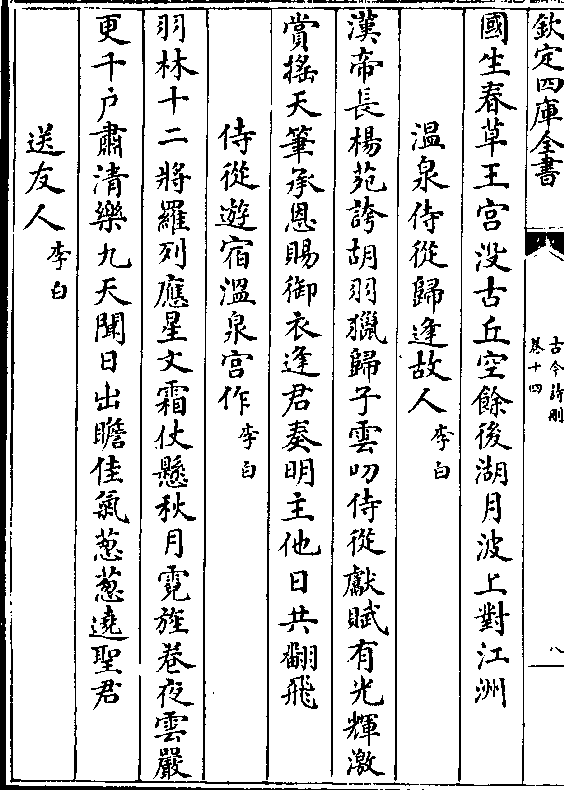 欽定四庫全書
古今詩刪
卷十四
八
國生春草王宮没古丘空餘後湖月波上對江洲
溫泉侍從歸逢故人
李白
漢帝長楊苑誇胡羽獵歸子雲叨侍從獻賦有光輝激
賞搖天筆承恩賜御衣逢君奏明主他日共翻飛
侍從遊宿溫泉宮作
李白
羽林十二將羅列應星文霜仗懸秋月霓旌巻夜雲嚴
更千户肅清樂九天聞日出瞻佳氣葱葱遶聖君
送友人
李白